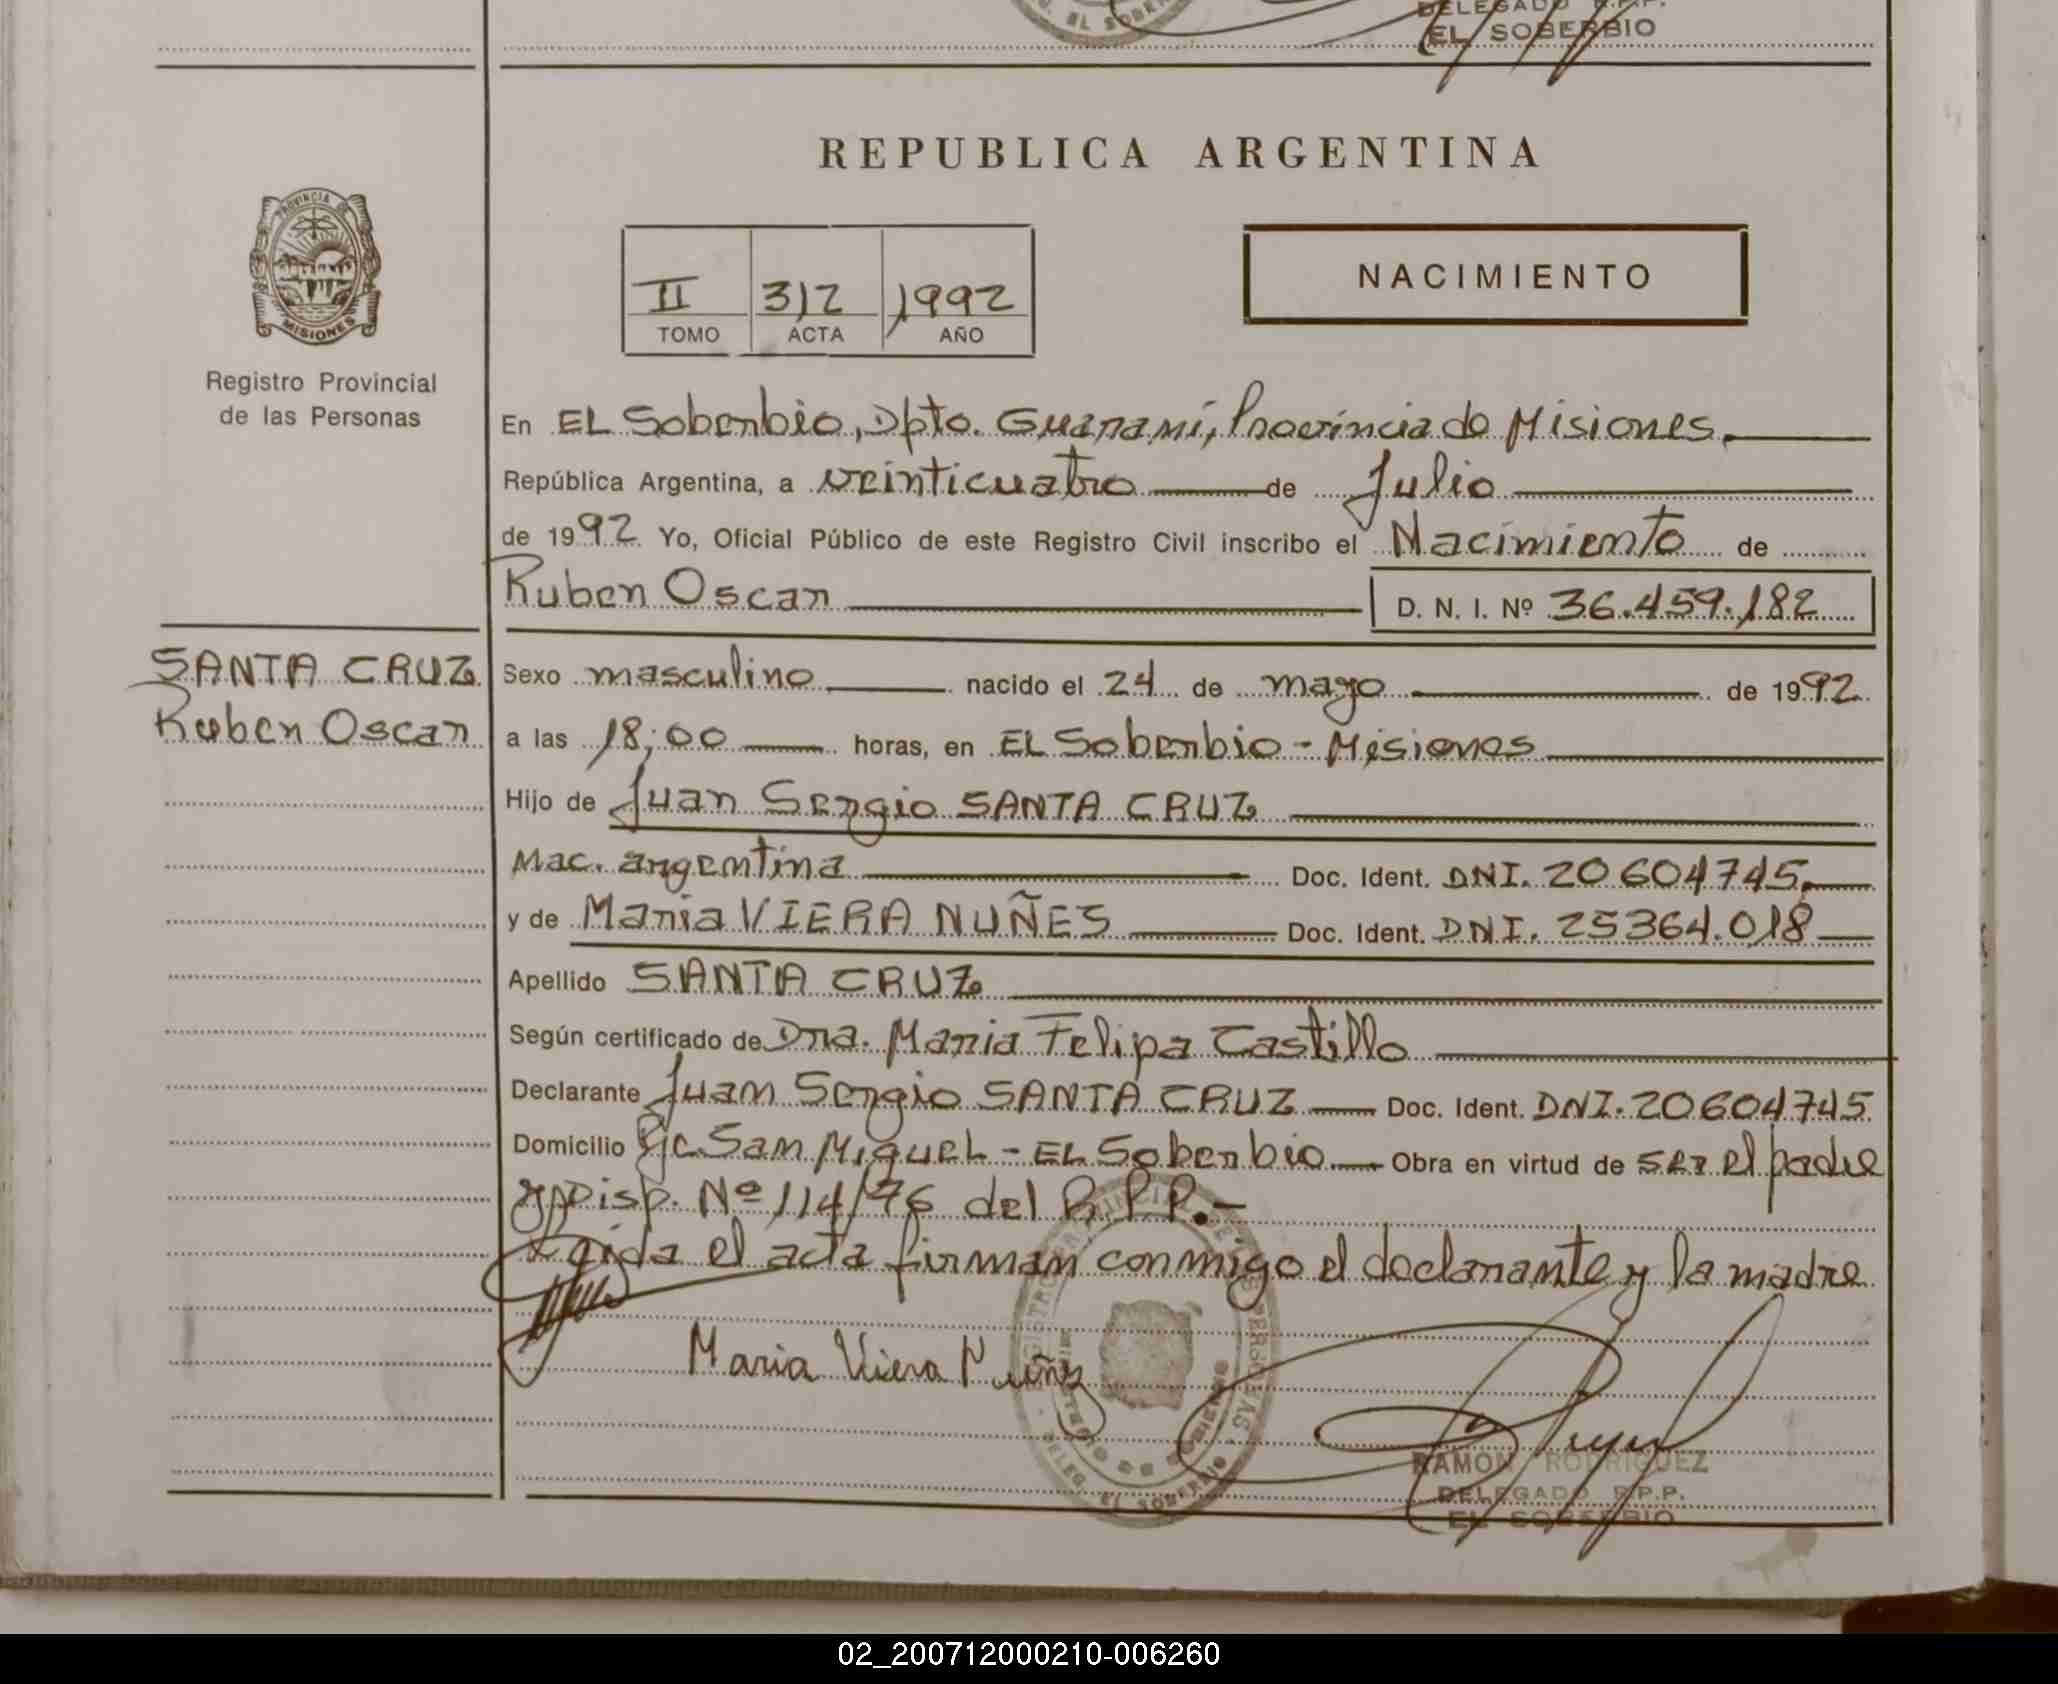 DELEGADO R.P.P.
EL SOBERBIO
REPUBLICA ARGENTINA
PROVINCIA DE
MISIONES
Registro Provincial
de las Personas
II 312 1992
TOMO ACTA AÑO
NACIMIENTO
En EL Soberbio, Dpto. Guarani, Provincia de Misiones.
República Argentina, a veinticuatro de Julio
de 1992 Yo, Oficial Público de este Registro Civil inscribo el Nacimiento de
Ruben Oscar D. N. I. Nº 36.459.182
SANTA CRUZ
Ruben Oscar
Sexo masculino nacido el 24 de mayo de 1992
a las 18;00 horas, en EL Soberbio - Misiones
Hijo de Juan Sergio SANTA CRUZ
Nac. argentina Doc. Ident. DNI. 20604745.
y de Maria VIERA NUÑES Doc. Ident. DNI. 25364.018
Apellido SANTA CRUZ
Según certificado de Dra. Maria Felipa Castillo
Declarante Juan Sergio SANTA CRUZ Doc. Ident. DNI. 20604745
Domicilio Pje. San Miguel - EL Soberbio Obra en virtud de ser el padre
y Disp. Nº 114/76 del R.P.P.-
Leida el acta firman conmigo el declarante y la madre
Maria Viera Nuñz
RAMON RODRIGUEZ
DELEGADO R.P.P.
EL SOBERBIO
02_200712000210-006260